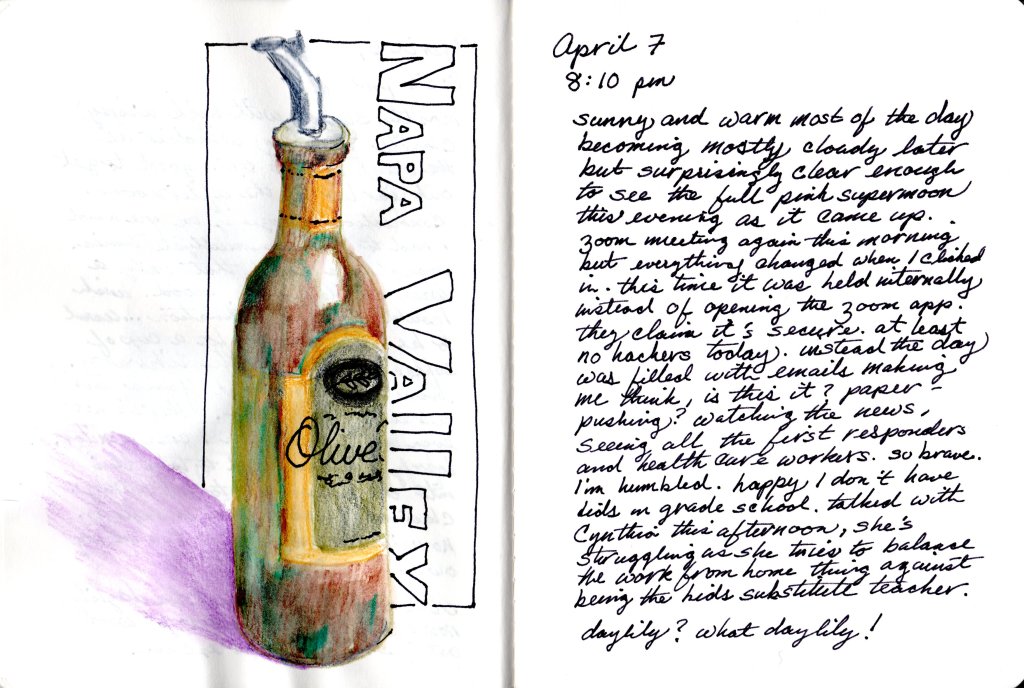 NAPA VALLEY
Olive
April 7
8:10 pm
sunny and warm most of the day
becoming mostly cloudy later
but surprisingly clear enough
to see the full pink supermoon
this evening as it came up.
zoom meeting again this morning
but everything changed when I clicked
in. this time it was held internally
instead of opening the zoom app.
they claim it's secure. at least
no hackers today. instead the day
was filled with emails making
me think, is this it? paper-
pushing? watching the news,
seeing all the first responders
and health care workers. so brave.
I'm humbled. happy I don't have
kids in grade school. talked with
Cynthia this afternoon, she's
struggling as she tries to balance
the work from home thing against
being the kids substitute teacher.
daylily? what daylily!